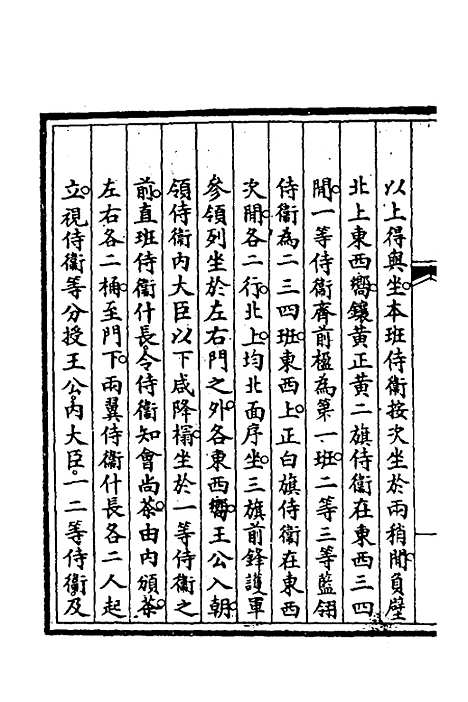 以上得與坐本班侍衛按次坐於兩稍閒負壁
北上東西嚮鑲黃正黃二旗侍衛在東西三四
閒一等侍衛齊前楹為第一班二等三等藍翎
侍衛為二三四班東西上正白旗侍衛在東西
次閒各二行北上均北面序坐三旗前鋒護軍
參領列坐於左右門之外各東西嚮王公入朝
領侍衛內大臣以下咸降榻坐於一等侍衛之
前直班侍衛什長令侍衛知會尚茶由內頒茶
左右各二桶至門下兩翼侍衛什長各二人起
立視侍衛等分授王公內大臣一二等侍衛及